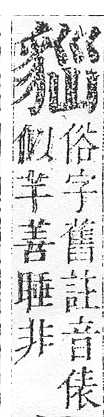 俗字舊註音俵
似羊善睡非